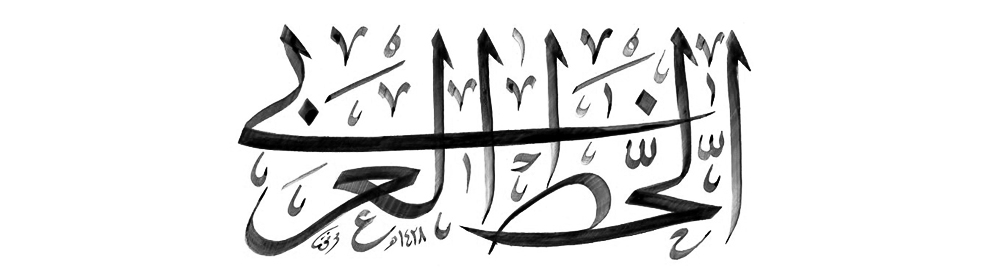 الخط العربي
١٤٢٨هـ